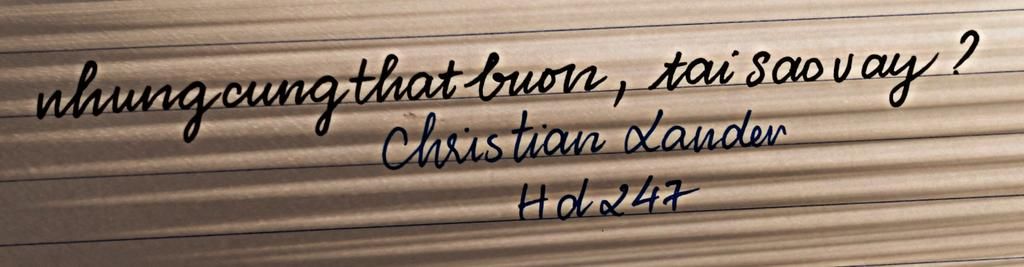 nhung cung that buon, tai sao vay?
Christian Lander
Hd247